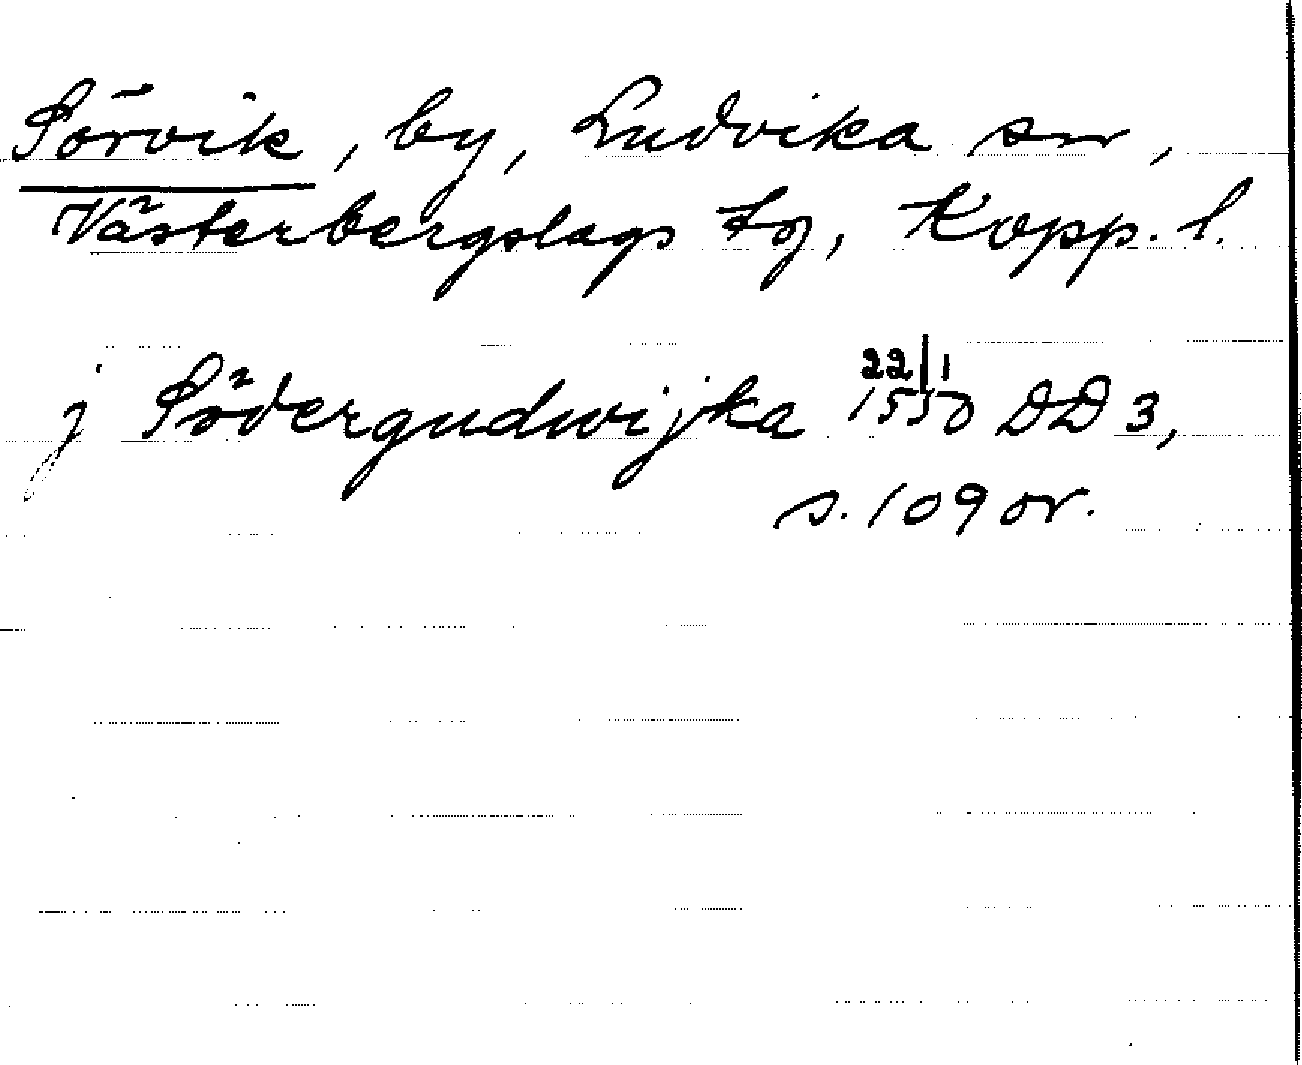 Sörvik, by, Ludvika sn,
Västerbergslags tg, Kopp. l.
j Södergudwijka 22/1 1550 DD 3,
s. 109 or.